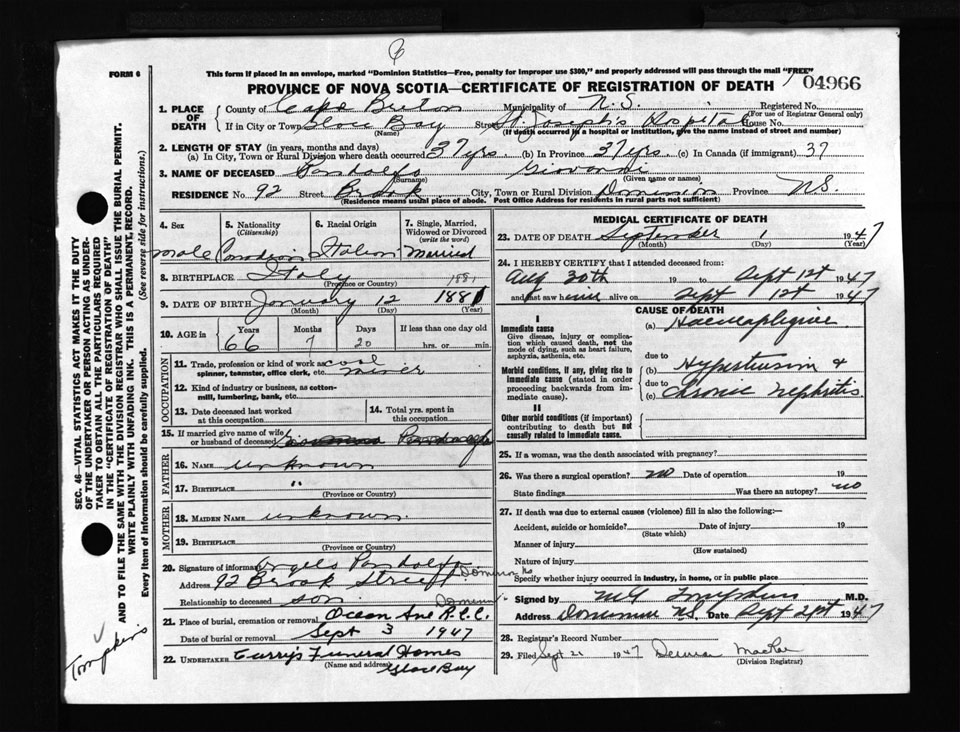 6
FORM 6
This form if placed in an envelope, marked "Dominion Statistics—Free, penalty for improper use $300," and properly addressed will pass through the mail "FREE"
PROVINCE OF NOVA SCOTIA—CERTIFICATE OF REGISTRATION OF DEATH
04966
1. PLACE OF DEATH
County of Cape Breton Municipality of N.S. Registered No.
(For use of Registrar General only)
If in City or Town Glace Bay Street St. Joseph's Hospital House No.
(Name) (If death occurred in a hospital or institution, give the name instead of street and number)
2. LENGTH OF STAY (in years, months and days)
(a) In City, Town or Rural Division where death occurred 37 yrs. (b) In Province 37 yrs. (c) In Canada (if immigrant) 37
3. NAME OF DECEASED Pandolfo Giovanni
(Surname) (Given name or names)
RESIDENCE No. 92 Street Brook City, Town or Rural Division Dominion Province N.S.
(Residence means usual place of abode. Post Office Address for residents in rural parts not sufficient)
4. Sex
5. Nationality (Citizenship)
6. Racial Origin
7. Single, Married, Widowed or Divorced (write the word)
Male Canadian Italian Married
8. BIRTHPLACE Italy
(Province or Country)
1881
9. DATE OF BIRTH January 12 1881
(Month) (Day) (Year)
10. AGE in Years Months Days If less than one day old
66 7 20 hrs. or min.
OCCUPATION
11. Trade, profession or kind of work as coal miner
spinner, teamster, office clerk, etc.
12. Kind of industry or business, as cotton-mill, lumbering, bank, etc.
13. Date deceased last worked at this occupation
14. Total yrs. spent in this occupation
15. If married give name of wife or husband of deceased Pandolfo
FATHER
16. NAME unknown
17. BIRTHPLACE "
(Province or Country)
MOTHER
18. MAIDEN NAME unknown.
19. BIRTHPLACE
(Province or Country)
20. Signature of informant Angelo Pandolfo
Address 92 Brook Street Dominion N.S.
Relationship to deceased son Dominion
21. Place of burial, cremation or removal Ocean Ave R.C.C.
Date of burial or removal Sept 3 1947
22. UNDERTAKER Curry's Funeral Homes
(Name and address) Glace Bay
MEDICAL CERTIFICATE OF DEATH
23. DATE OF DEATH September 1 1947
(Month) (Day) (Year)
24. I HEREBY CERTIFY that I attended deceased from:
Aug 30th 19 to Sept 1st 1947
and last saw alive on Sept 1st 1947
CAUSE OF DEATH
I
Immediate cause
Give disease, injury or complication which caused death, not the mode of dying, such as heart failure, asphyxia, asthenia, etc.
(a)
due to
Morbid conditions, if any, giving rise to immediate cause (stated in order proceeding backwards from immediate cause).
(b) Hypertension &
due to
(c) Chronic Nephritis
II
Other morbid conditions (if important) contributing to death but not causally related to immediate cause.
25. If a woman, was the death associated with pregnancy?
26. Was there a surgical operation? no Date of operation 19
State findings Was there an autopsy? no
27. If death was due to external causes (violence) fill in also the following:—
Accident, suicide or homicide? Date of injury 19
(State which)
Manner of injury
(How sustained)
Nature of injury
Specify whether injury occurred in industry, in home, or in public place
Signed by M G Tompkins M.D.
Address Dominion N.S. Date Sept 21st 1947
28. Registrar's Record Number
29. Filed Sept 21 1947 MacRae
(Division Registrar)
SEC. 46—VITAL STATISTICS ACT MAKES IT THE DUTY
OF THE UNDERTAKER OR PERSON ACTING AS UNDER-
TAKER TO OBTAIN ALL THE PARTICULARS REQUIRED
IN THE "CERTIFICATE OF REGISTRATION OF DEATH"
AND TO FILE THE SAME WITH THE DIVISION REGISTRAR WHO SHALL ISSUE THE BURIAL PERMIT.
WRITE PLAINLY WITH UNFADING INK. THIS IS A PERMANENT RECORD.
Every item of information should be carefully supplied. (See reverse side for instructions.)
Tompkins